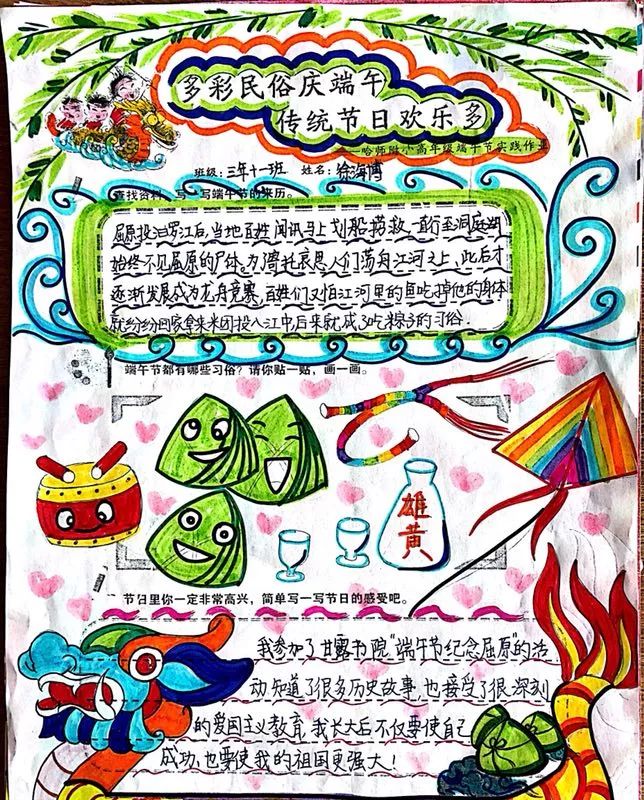 多彩民俗庆端午
传统节日欢乐多
——哈师附小高年级端午节实践作业
班级：三年十一班 姓名：徐海博
查找资料，写一写端午节的来历。
屈原投汨罗江后，当地百姓闻讯马上划船捞救，一直行至洞庭湖
始终不见屈原的尸体。为寄托哀思，人们荡舟江河之上，此后才
逐渐发展成为龙舟竞赛，百姓们又怕江河里的鱼吃掉他的身体
就纷纷回家拿来米团投入江中后来就成了吃粽子的习俗.
端午节都有哪些习俗？请你贴一贴，画一画。
雄
黄
节日里你一定非常高兴，简单写一写节日的感受吧。
我参加了甘露书院"端午节纪念屈原"的活
动,知道了很多历史故事,也接受了很深刻
的爱国主义教育,我长大后不仅要使自己
成功,也要使我的祖国更强大!